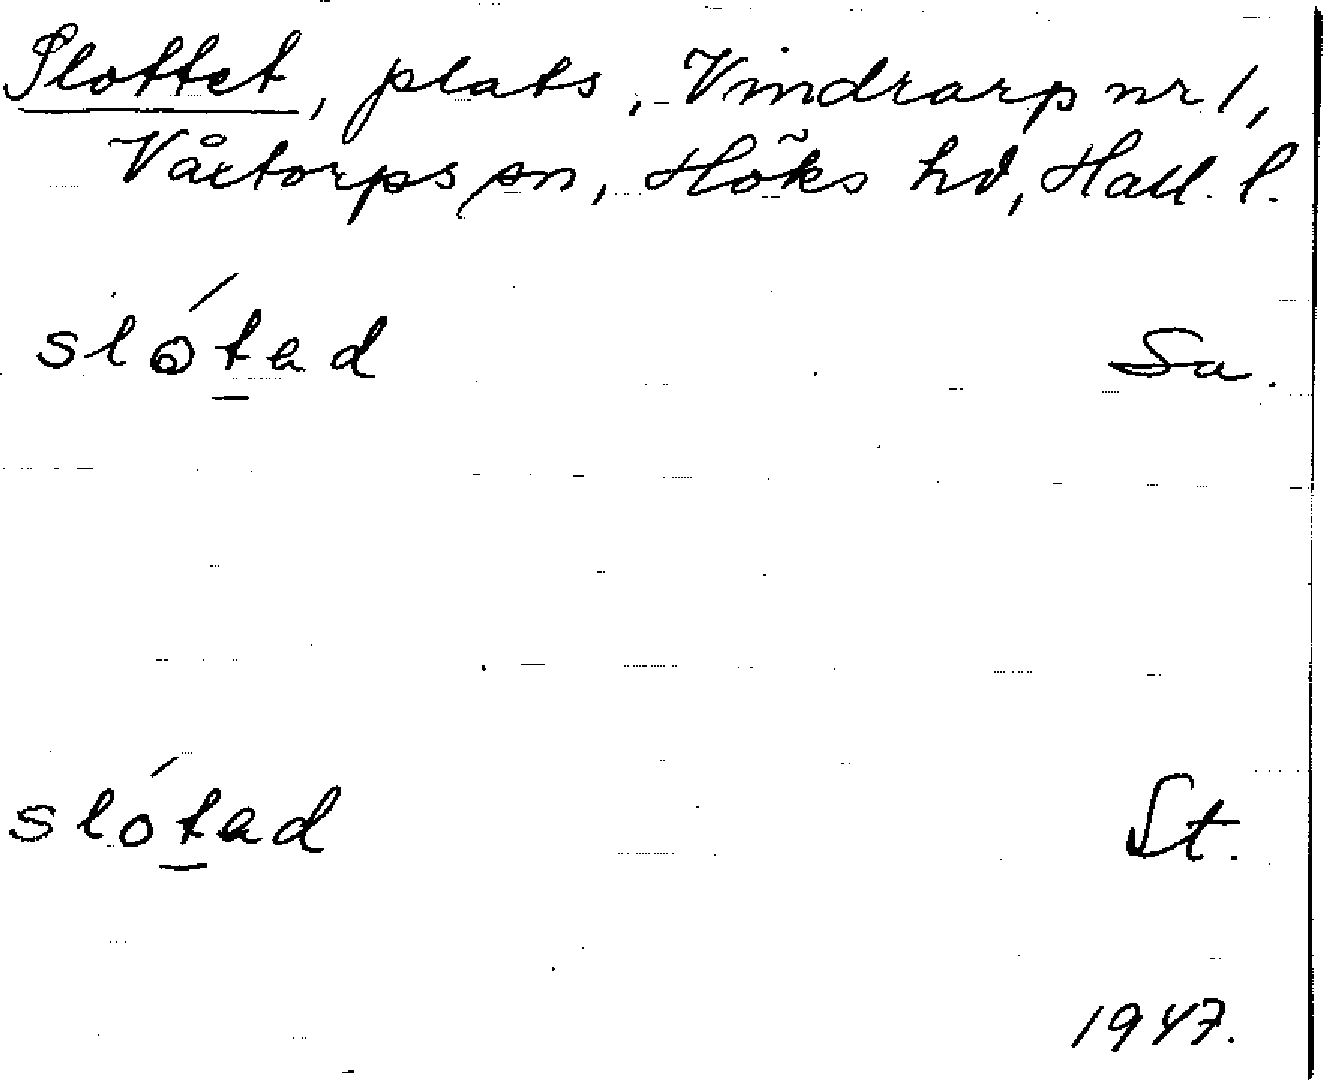 Slottet, plats, Vindrarp nr 1,
Vårtorps sn, Höks hd, Hall. l.
slótad Sa.
slótad St.
1947.